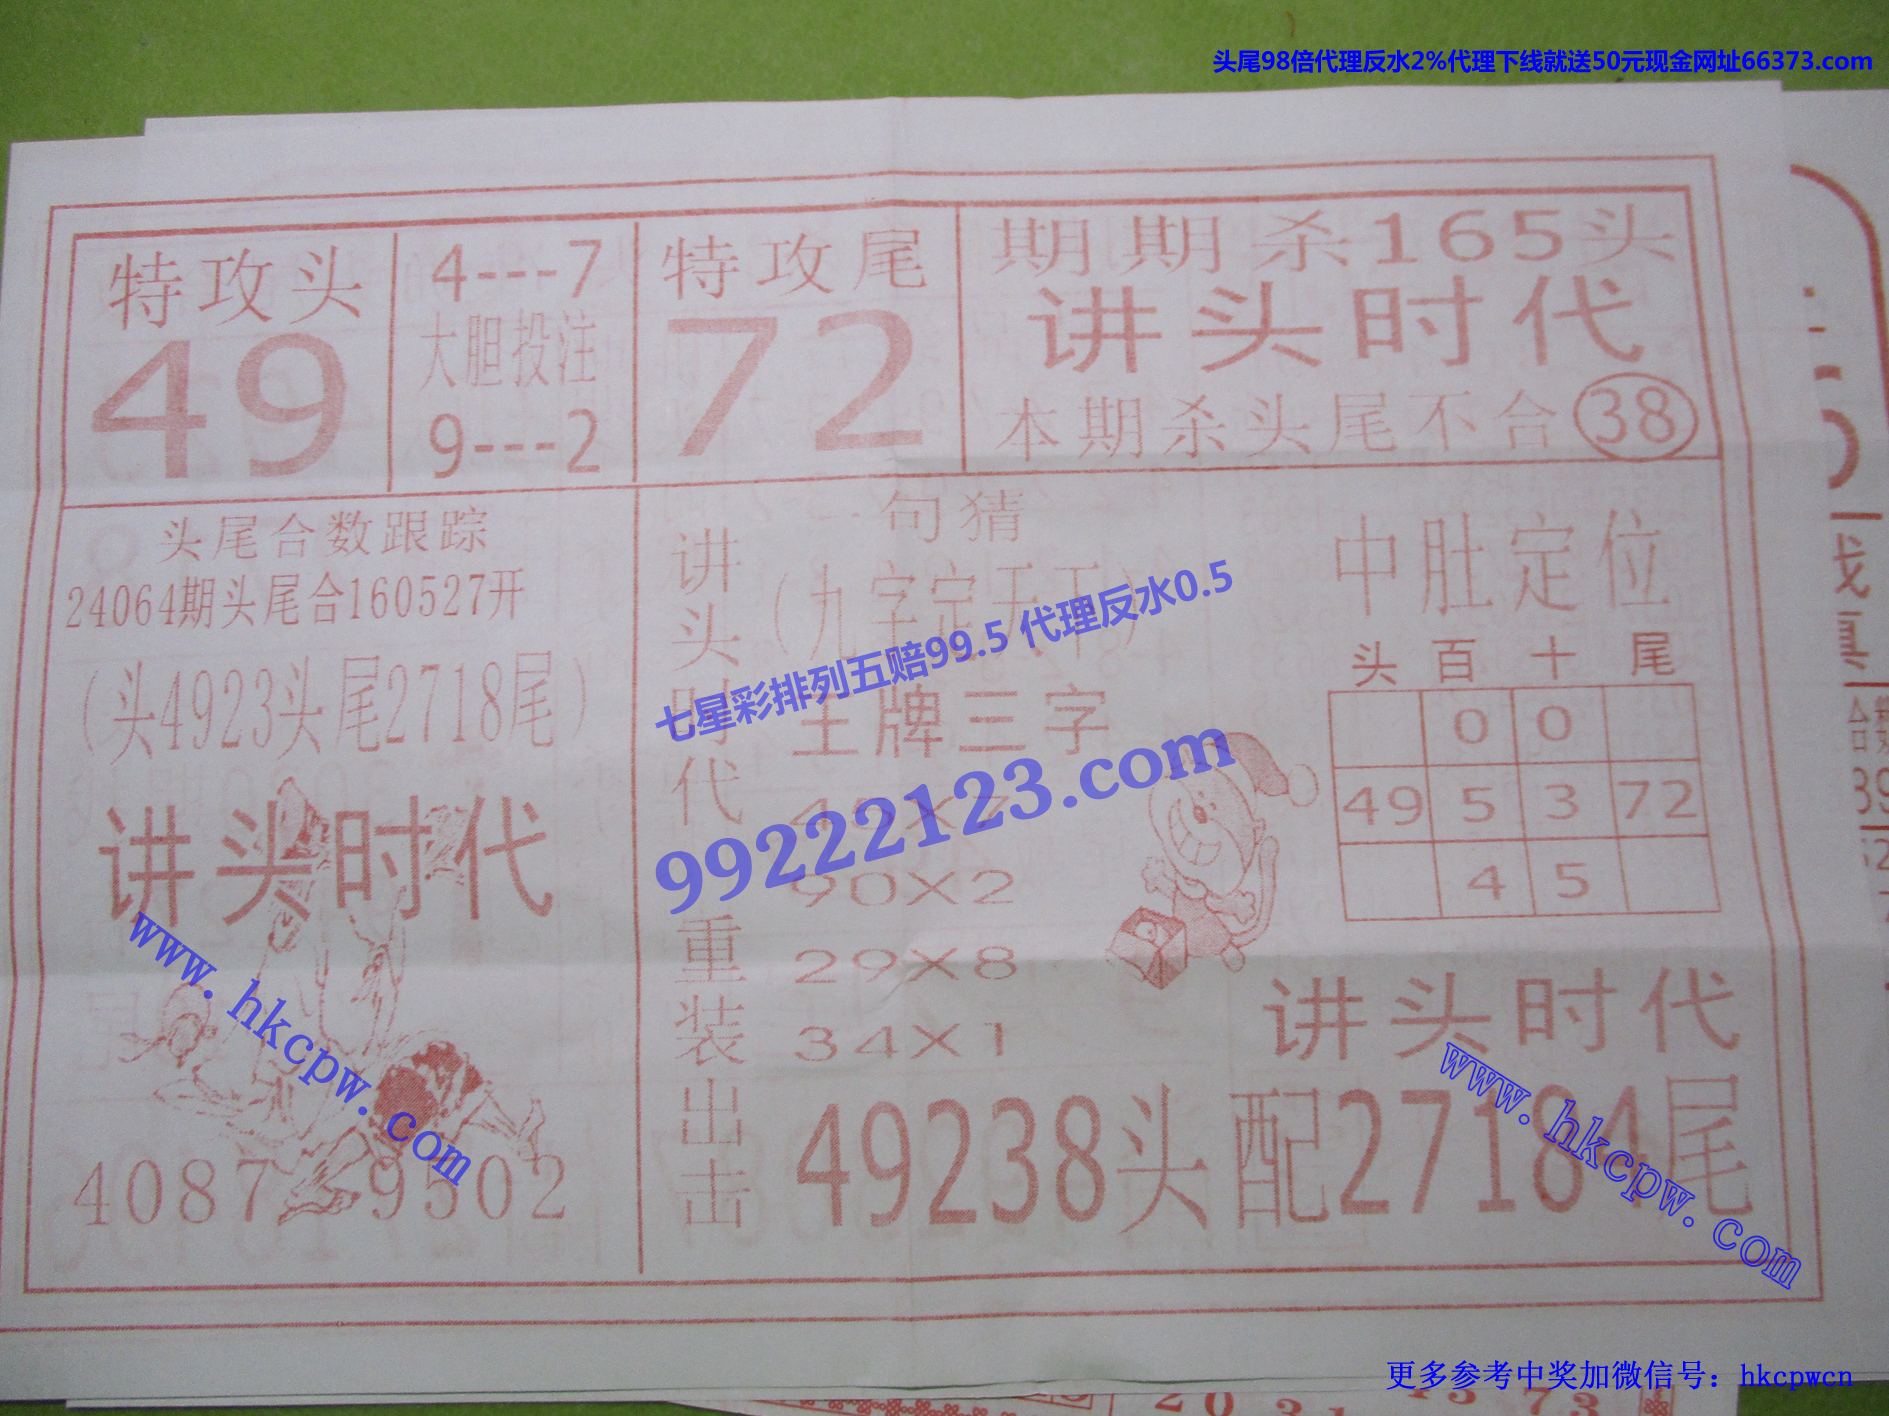 头尾98倍代理反水2%代理下线就送50元现金网址66373.com
特攻头
49
4---7
大胆投注
9---2
特攻尾
72
期期杀165头
讲头时代
本期杀头尾不合38
头尾合数跟踪
24064期头尾合160527开
(头4923头尾2718尾)
讲头时代
4087
9502
讲头时代
重装出击
一句猜
(九字定天干)
王牌三字
45X7
90X2
29X8
34X1
中肚定位
头 百 十 尾
0 0
49 5 3 72
4 5
讲头时代
49238头配27184尾
七星彩排列五赔99.5 代理反水0.5
99222123.com
www.hkcpw.com
www.hkcpw.com
更多参考中奖加微信号：hkcpwcn